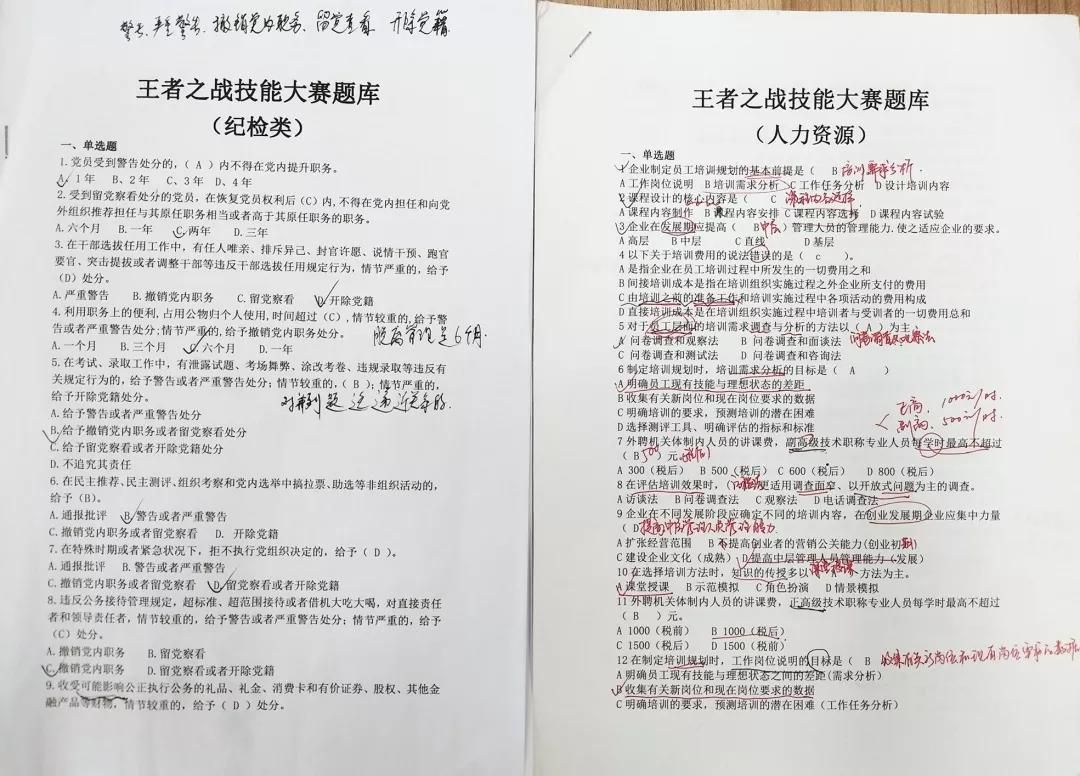 警告、严重警告、撤销党内职务、留党查看 开除党籍
王者之战技能大赛题库
（纪检类）
一、单选题
1.党员受到警告处分的，（ A ）内不得在党内提升职务。
A.1年 B、2年 C、3年 D、4年
2.受到留党察看处分的党员，在恢复党员权利后（C）内，不得在党内担任和向党
外组织推荐担任与其原任职务相当或者高于其原任职务的职务。
A.六个月 B.一年 C.两年 D.三年
3.在干部选拔任用工作中，有任人唯亲、排斥异己、封官许愿、说情干预、跑官
要官、突击提拔或者调整干部等违反干部选拔任用规定行为，情节严重的，给予
（D）处分。
A.严重警告 B.撤销党内职务 C.留党察看 D.开除党籍
4.利用职务上的便利，占用公物归个人使用，时间超过（C），情节较重的，给予警
告或者严重警告处分；情节严重的，给予撤销党内职务处分。
A.一个月 B.三个月 C.六个月 D.一年
脱离管理是6个月
5.在考试、录取工作中，有泄露试题、考场舞弊、涂改考卷、违规录取等违反有
关规定行为的，给予警告或者严重警告处分；情节较重的，（ B ）；情节严重的，
给予开除党籍处分。
A.给予警告或者严重警告处分
B.给予撤销党内职务或者留党察看处分
C.给予留党察看或者开除党籍处分
D.不追究其责任
6.在民主推荐、民主测评、组织考察和党内选举中搞拉票、助选等非组织活动的，
给予（B）。
A.通报批评 B.警告或者严重警告
C.撤销党内职务或者留党察看 D. 开除党籍
7.在特殊时期或者紧急状况下，拒不执行党组织决定的，给予（ D ）。
A.通报批评 B.警告或者严重警告
C.撤销党内职务或者留党察看 D.留党察看或者开除党籍
8.违反公务接待管理规定，超标准、超范围接待或者借机大吃大喝，对直接责任
者和领导责任者，情节较重的，给予警告或者严重警告处分；情节严重的，给予
（C）处分。
A.撤销党内职务 B.留党察看
C.撤销党内职务 D.留党察看或者开除党籍
9.收受可能影响公正执行公务的礼品、礼金、消费卡和有价证券、股权、其他金
融产品等财物，情节较重的，给予（ D ）处分。
王者之战技能大赛题库
（人力资源）
一、单选题
1 企业制定员工培训规划的基本前提是（ B 培训需求分析
A 工作岗位说明 B 培训需求分析 C 工作任务分析 D 设计培训内容
2 课程设计的核心内容是（ C
A 课程内容制作 B 课程内容安排 C 课程内容选择 D 课程内容试验
3 企业在发展期应提高（ B 中层 ）管理人员的管理能力，使之适应企业的要求。
A 高层 B 中层 C 直线 D 基层
4 以下关于培训费用的说法错误的是（ c ）。
A 是指企业在员工培训过程中所发生的一切费用之和
B 间接培训成本是指在培训组织实施过程之外企业所支付的费用
C 由培训之前的准备工作和培训实施过程中各项活动的费用构成
D 直接培训成本是在培训组织实施过程中培训者与受训者的一切费用总和
5 对于员工层面的培训需求调查与分析的方法以（ A ）为主。
A 问卷调查和观察法 B 问卷调查和面谈法
C 问卷调查和测试法 D 问卷调查和咨询法
6 制定培训规划时，培训需求分析的目标是（ A ）
A 明确员工现有技能与理想状态的差距
B 收集有关新岗位和现在岗位要求的数据
C 明确培训的要求，预测培训的潜在困难
D 选择测评工具、明确评估的指标和标准
正高，1000元/时.
副高，500元/时.
7 外聘机关体制内人员的讲课费，副高级技术职称专业人员每学时最高不超过
（ B 500 ）元（税后）
A 300（税后） B 500（税后） C 600（税后） D 800（税后）
8 在评估培训效果时，（ ）更适用调查面窄、以开放式问题为主的调查。
A 访谈法 B 问卷调查法 C 观察法 D 电话调查法
9 企业在不同发展阶段应确定不同的培训内容，在创业发展期企业应集中力量
（ D 提高中层管理人员管理能力
A 扩张经营范围 B 不提高创业者的营销公关能力(创业初期)
C 建设企业文化（成熟） D 提高中层管理人员管理能力（发展）
10 在选择培训方法时，知识的传授多以（ A ）方法为主。
A 课堂授课 B 示范模拟 C 角色扮演 D 情景模拟
11 外聘机关体制内人员的讲课费，正高级技术职称专业人员每学时最高不超过
（ B ）元。
A 1000（税前） B 1000（税后）
C 1500（税后） D 1500（税前）
12 在制定培训规划时，工作岗位说明的目标是（ B 收集有关新岗位和现有岗位要求的数据
A 明确员工现有技能与理想状态之间的差距(需求分析)
B 收集有关新岗位和现在岗位要求的数据
C 明确培训的要求，预测培训的潜在困难（工作任务分析）